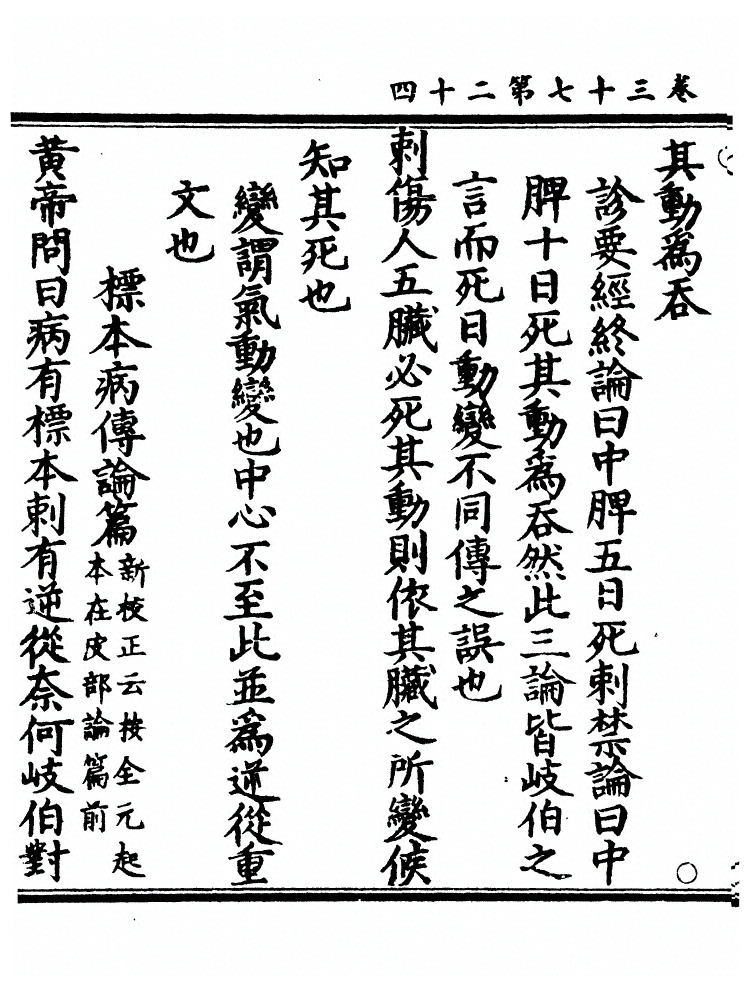 卷三十七第二十四
其動爲吞
診要經終論曰中脾五日死刺禁論曰中
脾十日死其動爲吞然此三論皆岐伯之
言而死日動變不同傳之誤也
刺傷人五臓必死其動則依其臓之所變候
知其死也
變謂氣動變也中心不至此並爲逆從重
文也
標本病傳論篇新校正云按全元起
本在皮部論篇前
黄帝問曰病有標本刺有逆從奈何岐伯對